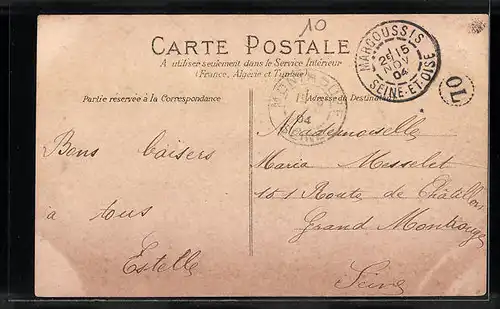 10
CARTE POSTALE
A utiliser seulement dans le Service Intérieur
(France, Algérie et Tunisie)
MARCOUSSIS
26 15
NOV
04
SEINE-ET-OISE
OL
Partie réservée à la Correspondance
Adresse du Destinataire
04
Mademoiselle
Maria Messelet
151 Route de Châtillon
Grand Montrouge
Seine
Bons baisers
à tous
Estelle